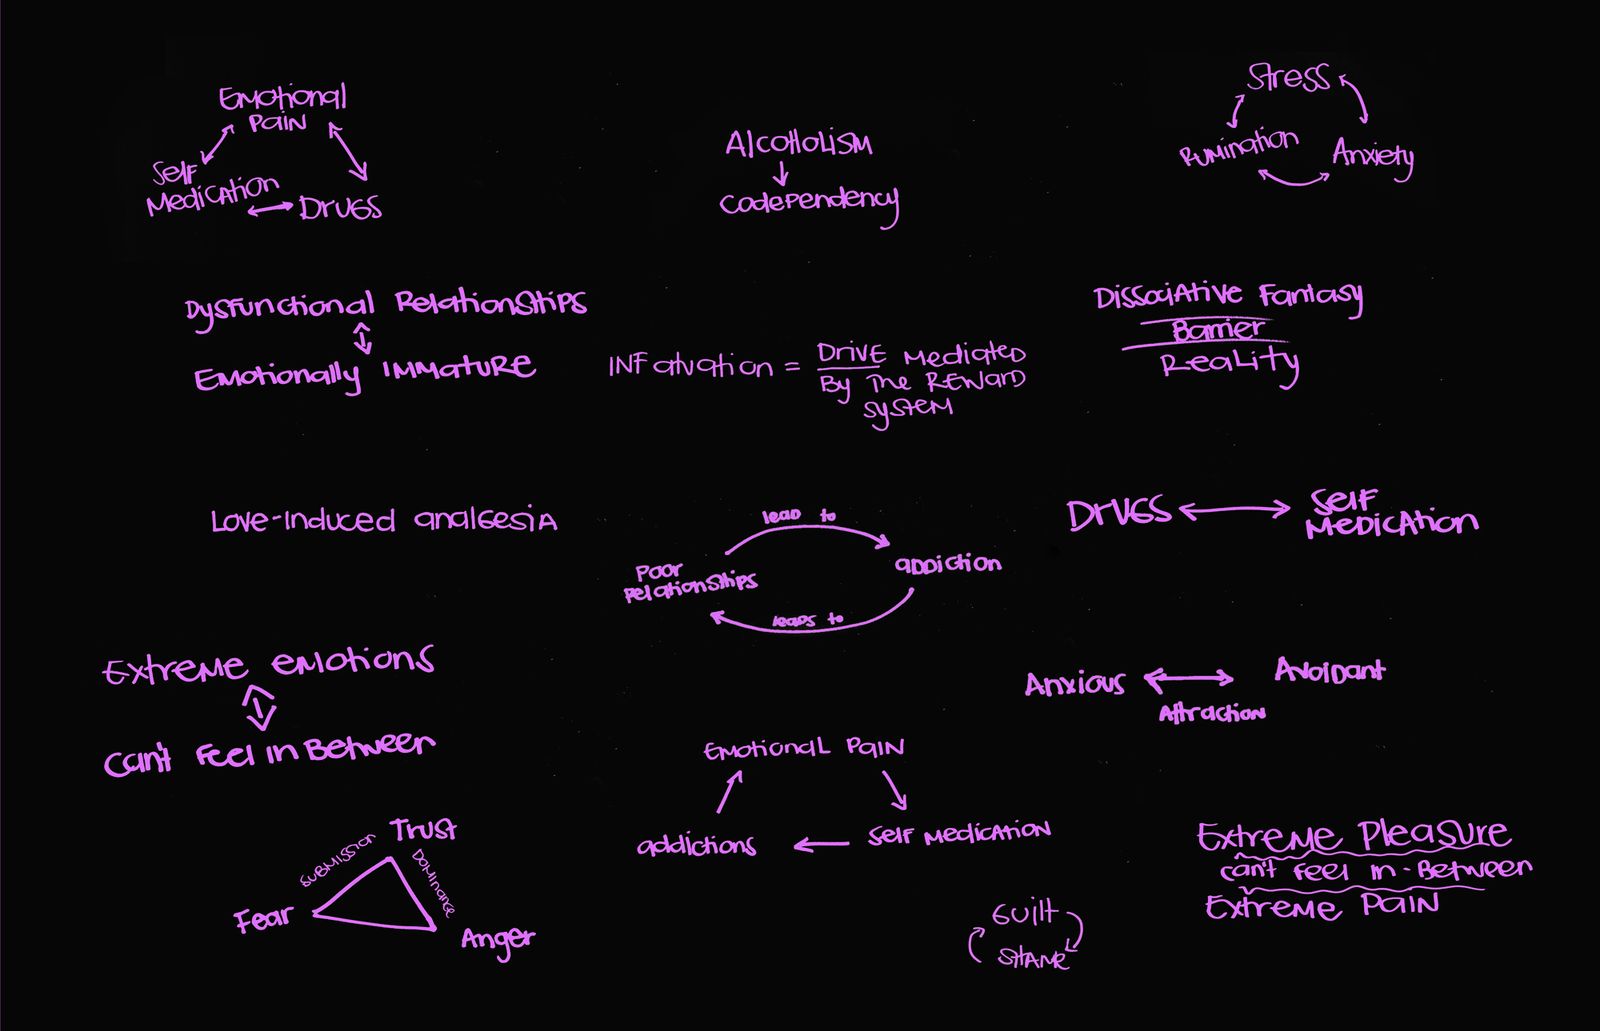 Emotional
Pain
Self
Medication
Drugs
Alcoholism
Codependency
Stress
Rumination
Anxiety
Dysfunctional Relationships
Emotionally Immature
Infatuation = Drive Mediated
By The Reward
System
Dissociative Fantasy
Barrier
Reality
Love-Induced analgesia
lead to
Poor
Relationships
addiction
leads to
Drugs
Self
Medication
Extreme emotions
Can't Feel in Between
Anxious
Avoidant
Attraction
Emotional Pain
addictions
Self Medication
Trust
Submission
Dominance
Fear
Anger
Extreme Pleasure
can't Feel in-Between
Extreme Pain
Guilt
Shame